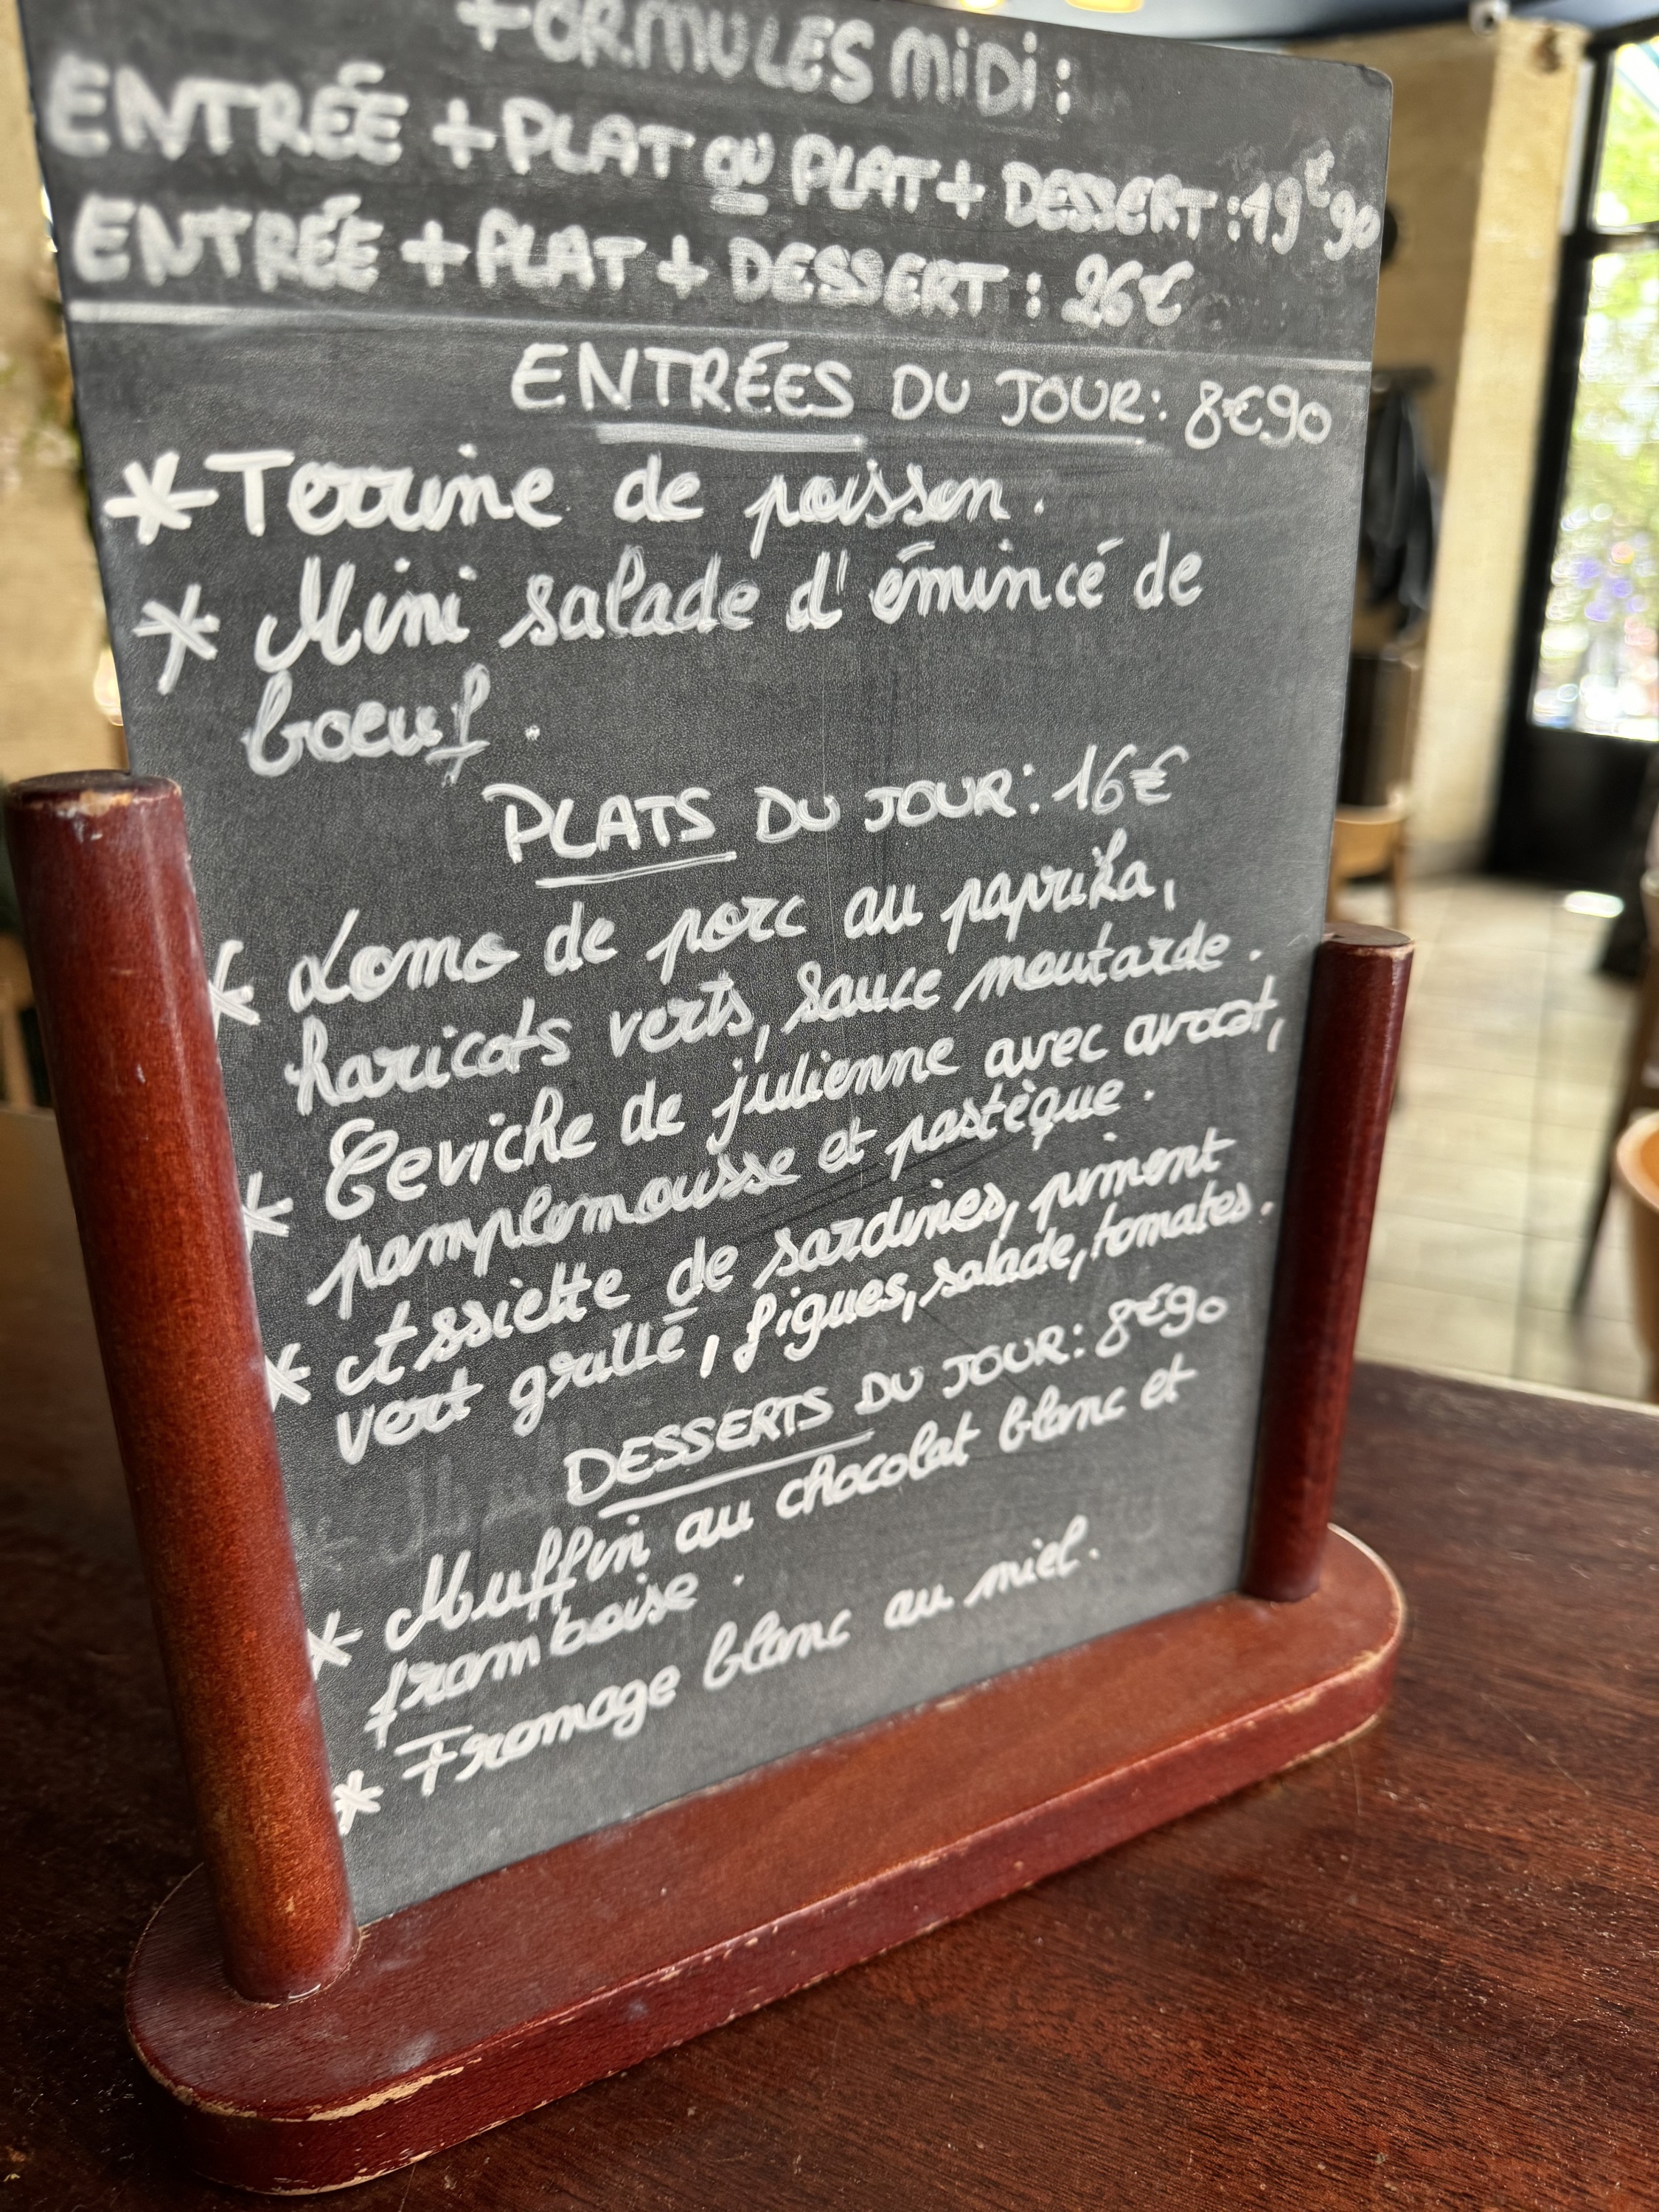 FORMULES MiDi :
ENTRÉE + PLAT OU PLAT + DESSERT : 19€90
ENTRÉE + PLAT + DESSERT : 26€
ENTRÉES DU JOUR : 8€90
* Terrine de poisson .
* Mini salade d'émincé de
boeuf .
PLATS DU JOUR : 16€
* Lomo de porc au paprika,
haricots verts, sauce moutarde .
* Ceviche de julienne avec avocat,
pamplemousse et pastèque .
* Assiette de sardines, piment
vert grillé, figues, salade, tomates .
DESSERTS DU JOUR : 8€90
* Muffin au chocolat blanc et
framboise .
* Fromage blanc au miel .